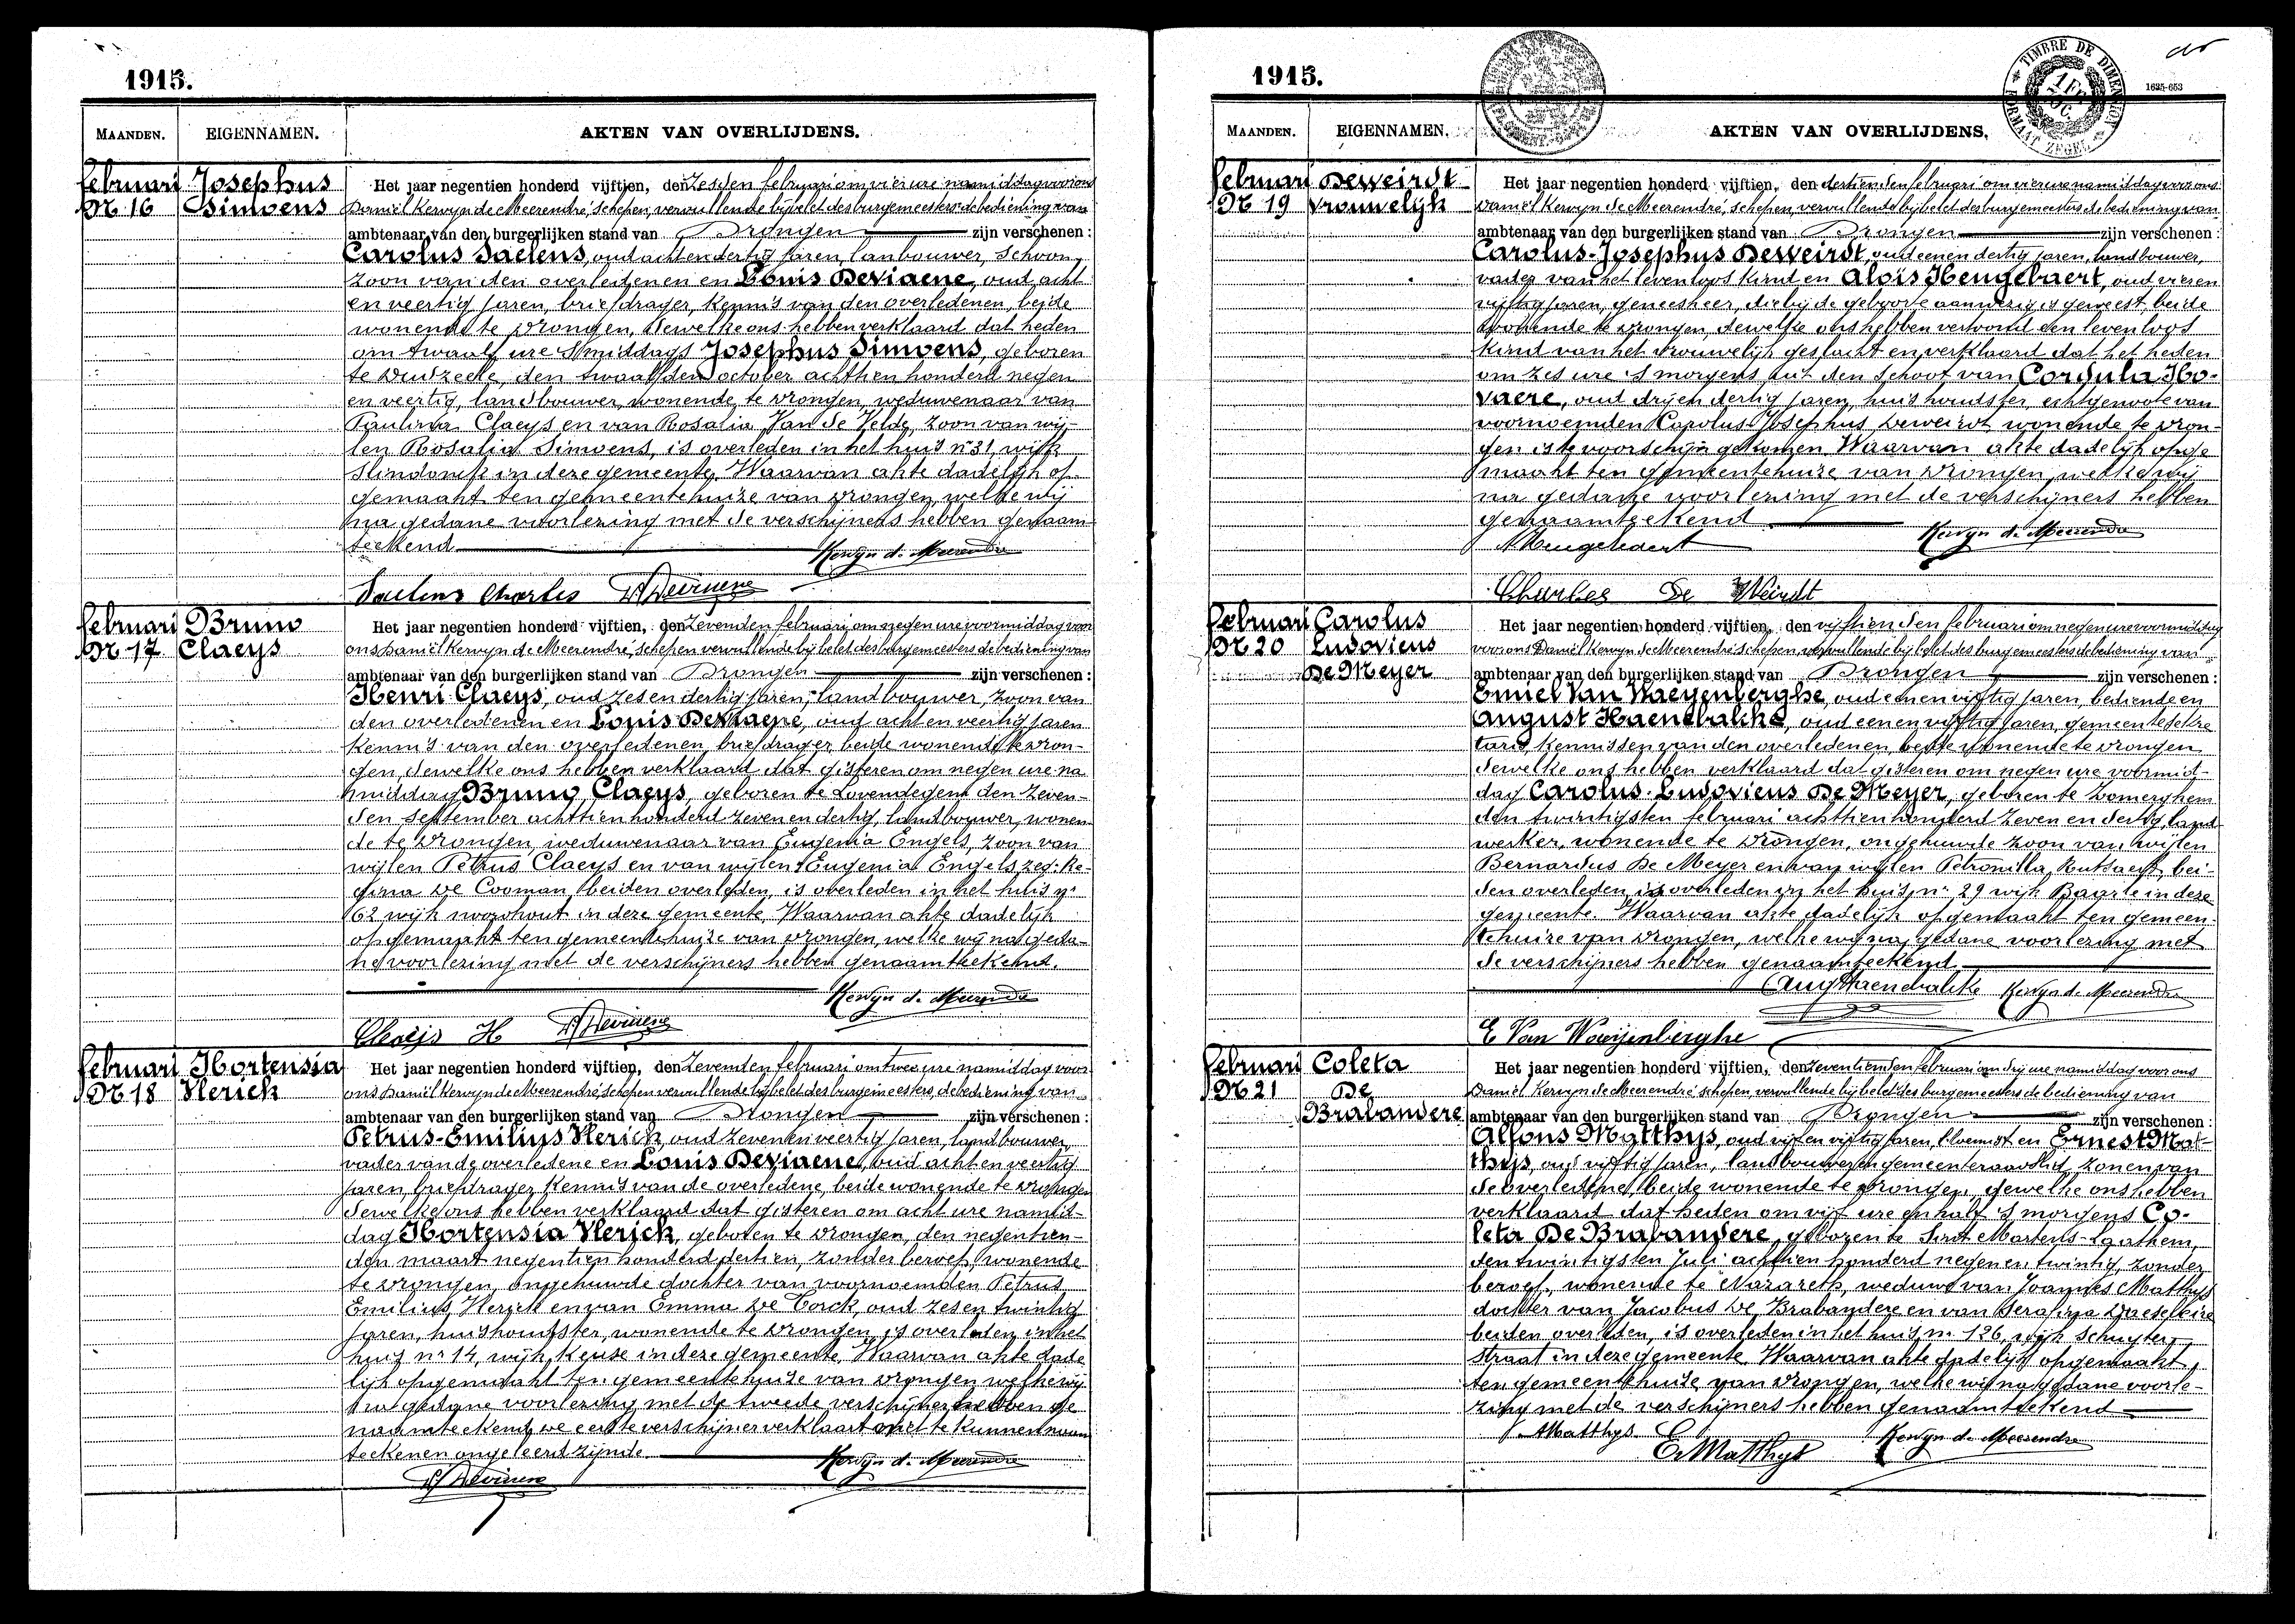 1915.
MAANDEN.
EIGENNAMEN.
AKTEN VAN OVERLIJDENS.
februari
Nr 16
Josephus
Simoens
Het jaar negentien honderd vijftien, den zesden februari om vier ure namiddag voor ons
Daniël Kerwyn de Meerendré, schepen, vervullende bij belet des burgemeesters de bediening van
ambtenaar van den burgerlijken stand van Drongen zijn verschenen :
Carolus Saelens, oud acht en dertig jaren, lanbouwer, schoon
zoon van den overleidenen en Louis Deviaene, oud acht
en veertig jaren, briefdrager, kennis van den overledenen, beide
wonende te Drongen, dewelke ons hebben verklaard dat heden
om twaalf ure 's middags Josephus Simoens, geboren
te den twaalfden october achthien honderd negen
en veertig, landbouwer, wonende te Drongen, weduwenaar van
Paulina Claeys en van Rosalia Van de Velde, zoon van wij-
len Rosalia Simoens, is overleden in het huis nr 31, wijk
in deze gemeente. Waarvan akte dadelijk op-
gemaakt ten gemeentehuize van Drongen, welke wij
na gedane voorlezing met de verschijners hebben genaam-
teekend
Kerwyn de Meerendré
Saelens Charles L Deviaene
februari
Nr 17
Bruno
Claeys
Het jaar negentien honderd vijftien, den zevenden februari om negen ure voormiddag voor
ons Daniël Kerwyn de Meerendré, schepen vervullende bij belet des burgemeesters de bediening van
ambtenaar van den burgerlijken stand van Drongen zijn verschenen :
Henri Claeys, oud zes en dertig jaren, landbouwer, zoon van
den overledenen en Louis Deviaene, oud acht en veertig jaren
kennis van den overledenen, briefdrager beide wonende te Dron-
gen, dewelke ons hebben verklaard dat gisteren om negen ure na
middag Bruno Claeys, geboren te Lovendegem den zeven-
den september achttien honderd zeven en dertig, landbouwer, wonen-
de te Drongen, weduwenaar van Eugenia Engels, zoon van
wijlen Petrus Claeys en van wijlen Eugenia Engels zeg: Re-
gina De Cooman, beiden overleden, is overleden in het huis nr
62 wijk noordhout in deze gemeente. Waarvan akte dadelijk
opgemaakt ten gemeentehuize van Drongen, welke wij na geda-
ne voorlezing met de verschijners hebben genaamteekend.
Kerwyn de Meerendré
Claeys H L Deviaene
februari
Nr 18
Hortensia
Vlerick
Het jaar negentien honderd vijftien, den zevenden februari om twee ure namiddag voor
ons Daniël Kerwyn de Meerendré, schepen vervullende bij belet des burgemeesters de bediening van
ambtenaar van den burgerlijken stand van Drongen zijn verschenen :
Petrus-Emilius Vlerick, oud zeven en veertig jaren, landbouwer,
vader van de overledene en Louis Deviaene, oud acht en veertig
jaren, briefdrager kennis van de overledene, beide wonende te Drongen
dewelke ons hebben verklaard dat gisteren om acht ure namid-
dag Hortensia Vlerick, geboren te Drongen, den negentien-
den maart negentien honderd dertien, zonder beroep, wonende
te Drongen, ongehuwde dochter van voornoemden Petrus
Emilius Vlerick en van Emma De Corck, oud zes en twintig
jaren, huishoudster, wonende te Drongen, is overleden in het
huis nr 14, wijk Keuze in deze gemeente. Waarvan akte dade
lijk opgemaakt ten gemeentehuize van Drongen welke wij
na gedane voorlezing met de tweede verschijner hebben ge
naamteekend, de eerste verschijner verklaart niet te kunnen naam
teekenen ongeleerd zijnde.
Kerwyn de Meerendré
L Deviaene
1915.
TIMBRE DE DIMENSION
FORMAAT ZEGEL
1635-653
MAANDEN.
EIGENNAMEN.
AKTEN VAN OVERLIJDENS.
februari
Nr 19
Deweirdt
vrouwelijk
Het jaar negentien honderd vijftien, den dertienden februari om vier ure namiddag voor ons
Daniël Kerwyn de Meerendré, schepen, vervullende bij belet des burgemeesters de bediening van
ambtenaar van den burgerlijken stand van Drongen zijn verschenen :
Carolus-Josephus Deweirdt, oud eenen dertig jaren, landbouwer,
vader van het levenloos kind en Aloïs Hengebaert, oud vier en
vijftig jaren, geneesheer, die bij de geboorte aanwezig is geweest, beide
wonende te Drongen, dewelke ons hebben vertoond een levenloos
kind van het vrouwelijk geslacht en verklaard dat het heden
om zes ure 's morgens uit den schoot van Cordula Ho-
vaere, oud drij en dertig jaren, huishoudster, echtgenoote van
voornoemden Carolus Josephus Deweirdt wonende te Dron-
gen is te voorschijn gekomen. Waarvan akte dadelijk opge
maakt ten gemeentehuize van Drongen, welke wij
na gedane voorlezing met de verschijners hebben
genaamteekend
Kerwyn de Meerendré
A Hengebaert
Charles De Weirdt
februari
Nr 20
Carolus
Ludovicus
De Meyer
Het jaar negentien honderd vijftien, den vijftienden februari om negen ure voormiddag
voor ons Daniël Kerwyn de Meerendré schepen, vervullende bij belet des burgemeesters de bediening van
ambtenaar van den burgerlijken stand van Drongen zijn verschenen :
Emiel Van Waeyenberghe, oud eenen vijftig jaren, bediende en
August Haendbalcke, oud eenen vijftig jaren, gemeentesekre
taris, kennissen van den overledenen, beide wonende te Drongen
dewelke ons hebben verklaard dat gisteren om negen ure voormid-
dag Carolus-Ludovicus De Meyer, geboren te Zomerghem
den twintigsten februari achthien honderd zeven en dertig, land-
werker, wonende te Drongen, ongehuwde zoon van wijlen
Bernardus De Meyer en van wijlen Petronilla Rutsaert, bei-
den overleden, is overleden in het huis nr 29 wijk Baarle in deze
gemeente. Waarvan akte dadelijk opgemaakt ten gemeen-
tehuize van Drongen, welke wij na gedane voorlezing met
de verschijners hebben genaamteekend
Aug Haendbalcke Kerwyn de Meerendré
E Van Waeyenberghe
februari
Nr 21
Coleta
De
Brabandere
Het jaar negentien honderd vijftien, den zeventienden februari om drij ure namiddag voor ons
Daniël Kerwyn de Meerendré schepen, vervullende bij belet des burgemeesters de bediening van
ambtenaar van den burgerlijken stand van Drongen zijn verschenen :
Alfons Matthys, oud vijf en vijftig jaren, bloemist en Ernest Mat-
thys, oud vijftig jaren, landbouwer en gemeenteraadslid, zonen van
de overledene, beide wonende te Drongen, dewelke ons hebben
verklaard dat heden om vijf ure en half 's morgens Co-
leta De Brabandere, geboren te Sint Martens-Laathem,
den twintigsten Juli achttien honderd negen en twintig, zonder
beroep, wonende te Nazareth, weduwe van Joannes Matthys
dochter van Jacobus De Brabandere en van Serafina
beiden overleden, is overleden in het huis nr 126, wijk Schuyter-
straat in deze gemeente. Waarvan akte dadelijk opgemaakt
ten gemeentehuize van Drongen, welke wij na gedane voorle-
zing met de verschijners hebben genaamteekend
A Matthys Kerwyn de Meerendré
E. Matthys